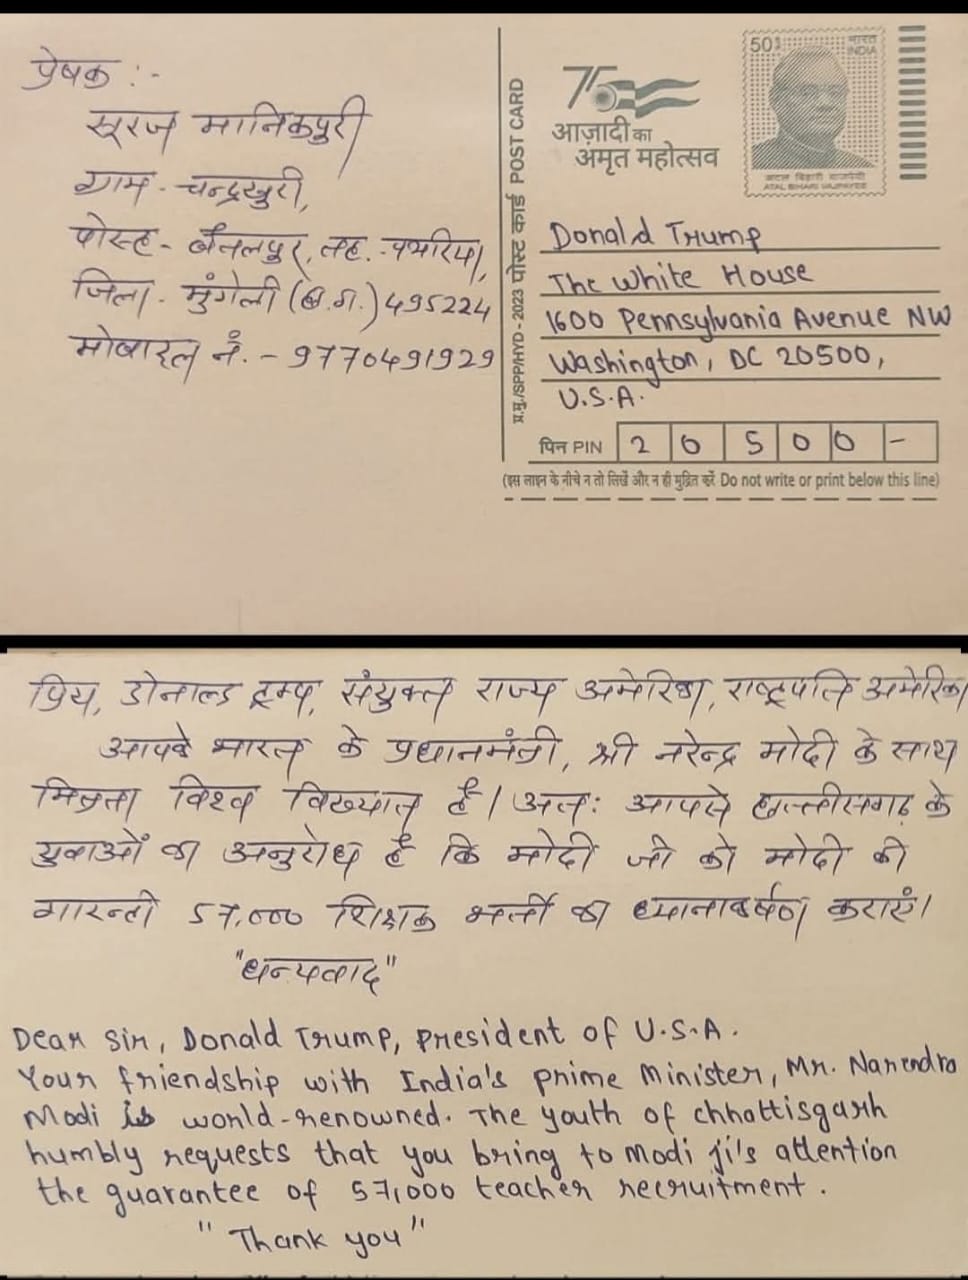 प्रेषक :-
सूरज मानिकपुरी
ग्राम - चन्द्रखुरी,
पोस्ट - बैतलपुर, तह. - पथरिया,
जिला - मुंगेली (छ.ग.) 495224
मोबाइल नं. - 9770491929
प्र.मु./SPP/HYD - 2023 पोस्ट कार्ड POST CARD
75
आज़ादी का
अमृत महोत्सव
50
भारत
INDIA
अटल बिहारी वाजपेयी
ATAL BIHARI VAJPAYEE
Donald Trump
The White House
1600 Pennsylvania Avenue NW
Washington, DC 20500,
U.S.A.
पिन PIN 2 0 5 0 0 -
(इस लाइन के नीचे न तो लिखें और न ही मुद्रित करें Do not write or print below this line)
प्रिय, डोनाल्ड ट्रम्प, संयुक्त राज्य अमेरिका, राष्ट्रपति अमेरिका
आपके भारत के प्रधानमंत्री, श्री नरेन्द्र मोदी के साथ
मित्रता विश्व विख्यात है। अतः आपसे छत्तीसगढ़ के
युवाओं का अनुरोध है कि मोदी जी को मोदी की
गारन्टी 57,000 शिक्षक भर्ती का ध्यानाकर्षण कराएं।
"धन्यवाद"
Dear Sir, Donald Trump, president of U.S.A.
Your friendship with India's prime Minister, Mr. Narendra
Modi is world-renowned. The youth of chhattisgarh
humbly requests that you bring to Modi ji's attention
the guarantee of 57,000 teacher recruitment.
"Thank you"